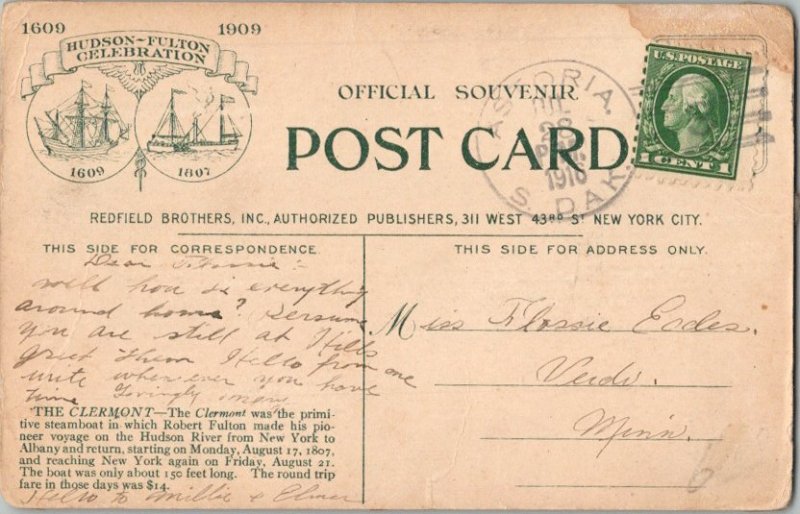 1609 1909
HUDSON-FULTON
CELEBRATION
1609 1807
OFFICIAL SOUVENIR
POST CARD
ASTORIA,
28
1916
S. DAK.
U.S. POSTAGE
1 CENT 1
REDFIELD BROTHERS, INC., AUTHORIZED PUBLISHERS, 311 WEST 43RD ST NEW YORK CITY.
THIS SIDE FOR CORRESPONDENCE
THIS SIDE FOR ADDRESS ONLY.
Dear Flossie:-
well how is everything
around home? Persume
you are still at Hills
greet them Hello from one
write when ever you have
time Lovingly mary
Miss Flossie Eades.
Verdi.
Minn.
THE CLERMONT—The Clermont was the primi-
tive steamboat in which Robert Fulton made his pio-
neer voyage on the Hudson River from New York to
Albany and return, starting on Monday, August 17, 1807,
and reaching New York again on Friday, August 21.
The boat was only about 150 feet long. The round trip
fare in those days was $14.
Hello to millie & Elmer